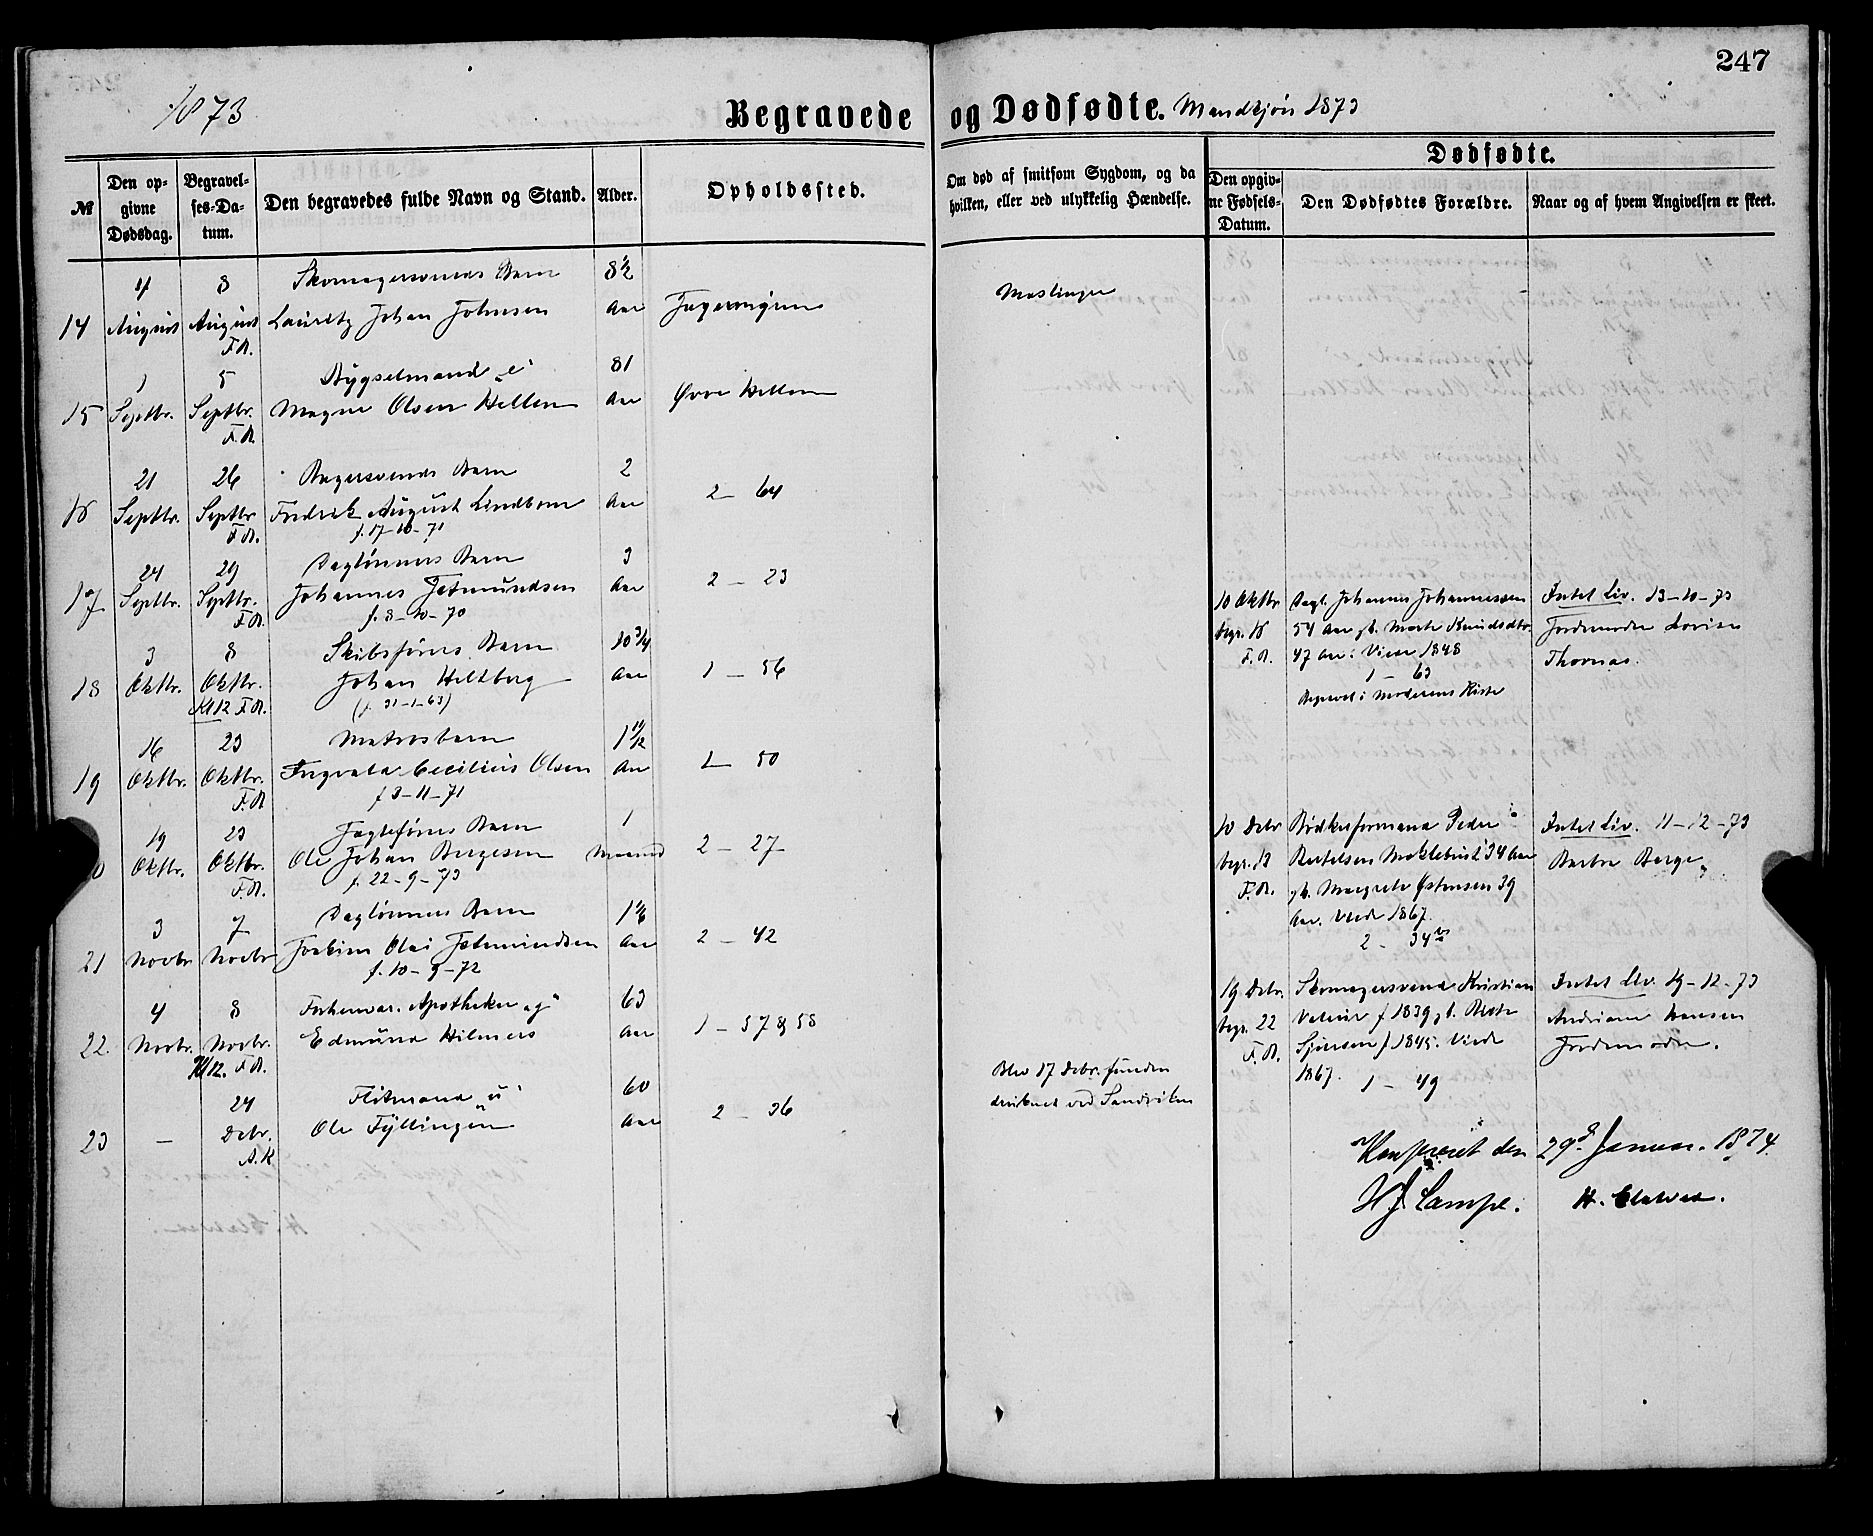 247
1873
Begravede og Dødfødte. Mandkjøn 1873
№
Den opgivne Dødsdag.
Begravelses-Datum.
Den begravedes fulde Navn og Stand.
Alder.
Opholdssted.
Om død af smitsom Sygdom, og da
hvilken, eller ved ulykkelig Hændelse.
Dødfødte.
Den opgivne Fødsels-Datum.
Den Dødfødtes Forældre.
Naar og af hvem Angivelsen er skeet.
4 8 Skomagersvends Barn 8½
14 August August Lauritz Johan Johnsen Aar
F.R.
Mæslinger
1 5 Bygselmand "e" 81
15 Septbr. Septbr. Magne Olsen Hellen Aar Øvre Hellen
F.R.
21 26 Bagersvends Barn 2
16 Septbr. Septbr. Fredrik August Lindbom Aar 2 – 64
F.R. f. 17-10-71
24 29 Daglønners Barn 3
17 Septbr. Septbr. Johannes Aar 2 – 23
F.R. f. 8-10-70
3 8 Skibsførers Barn 10¾
18 Oktbr. Oktbr. Johan Heltberg Aar 1 – 56
Kl 12 F.R. (f. 31-1-63)
16 23 Matrosbarn 1 11/12
19 Oktbr. Oktbr. Ingvald Cecilius Olsen Aar 1 – 50
F.R. f 3-11-71
19 23 Jagteførers Barn 1
0 Oktbr. Oktbr. Ole Johan Børgesen Maaned 2 – 27
F.R. f. 22-9-73
3 7 Daglønners Barn 1 1/6
21 Novbr Novbr Joakim Olai Aar 2 – 42
f. 10-9-72
4 8 Forhenvær. Apotheker "g" 63
22. Novbr. Novbr. Edmund Hilmers Aar 1 – 57 & 58
Kl 12. F.R.
24 Flødmand "u" 60
23 – Debr. Ole Fyllingen Aar 2 – 36
A.K
Blev 17 Debr. funden
druknet ved Sandviken
10 Oktbr Dagl. Johannes Johannessen Intet Liv. 13-10-73
begr. 16 54 Aar gb. Marte Knudsdtr. Jordemoder Lovise
F.R. 47 Aar. Viede 1848 Thomas.
1 – 63
Begravet i Moderens Kiste
10 Debr Bødkerformand Peder Intet Liv. 11-12-73
begr. 13 Bertelsen Møklebust 34 Aar Barbro Berge
F.R. gb. Margrete Østensen 39
Aar. Viede 1867.
2 – 34
19 Debr. Skomagersvend Kristian Intet Liv. 19-12-73
begr. 22 f 1839 gb. Berte Andriane Hansen
F.R. f 1845. Viede Jordemoder.
1867. 1 – 49
Konfereret den 29d Januar 1874.
H J Lampe. H. Clausen.